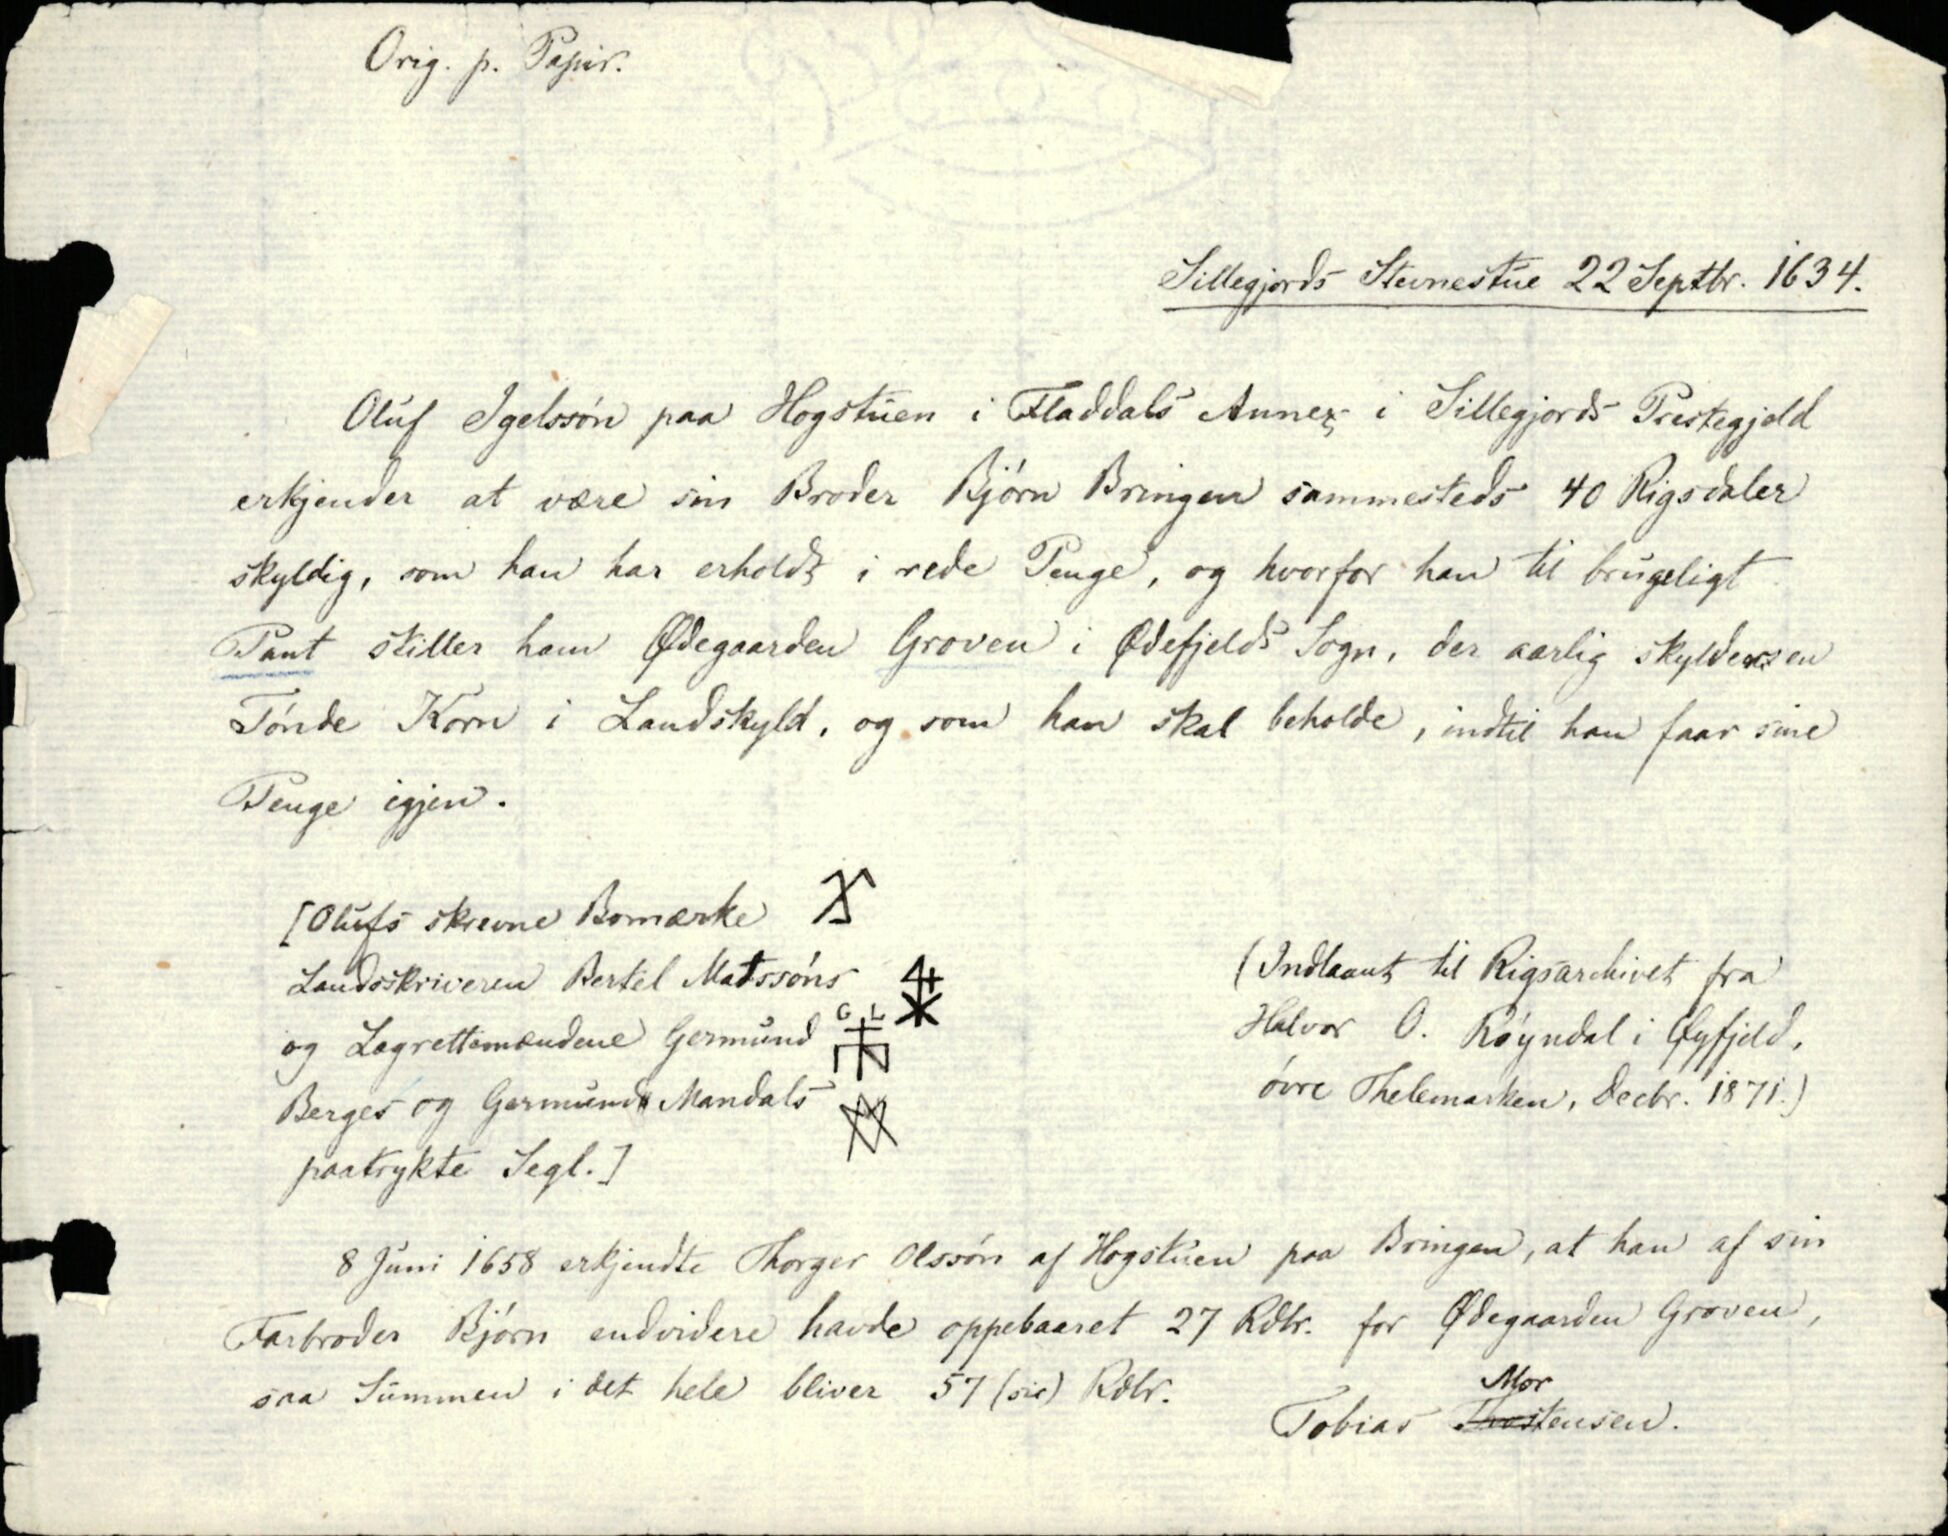 Orig. p. Papir.
Sillegjords Stevnestue 22 Septbr. 1634.
Oluf Igelssøn paa Hogstuen i Fladdals Annex i Sillegjords Prestegjeld
erkjender at være sin Broder Bjørn Bringen sammesteds 40 Rigsdaler
skyldig, som han har erholdt i rede Penge, og hvorfor han til brugeligt
Pant stiller ham Ødegaarden Groven i Ødefjelds Sogn, der aarlig skylder en
Tønde Korn i Landskyld, og som han skal beholde, indtil han faar sine
Penge igjen.
[Olufs skrevne Bomærke
Landsskriveren Bertel Matssøns
G L
og Lagrettemændene Germund
Berges og Germund Mandals
paatrykte Segl.]
(Indlaant til Rigsarchivet fra
Halvor O. Røyndal i Øyfjeld,
øvre Thelemarken, Decbr. 1871.)
8 Juni 1658 erkjendte Thorger Olssøn af Hogstuen paa Bringen, at han af sin
Farbroder Bjørn endvidere havde oppebaaret 27 Rdlr. for Ødegaarden Groven,
saa Summen i det hele bliver 57 (sic) Rdlr.
Mor
Tobias Thostensen.